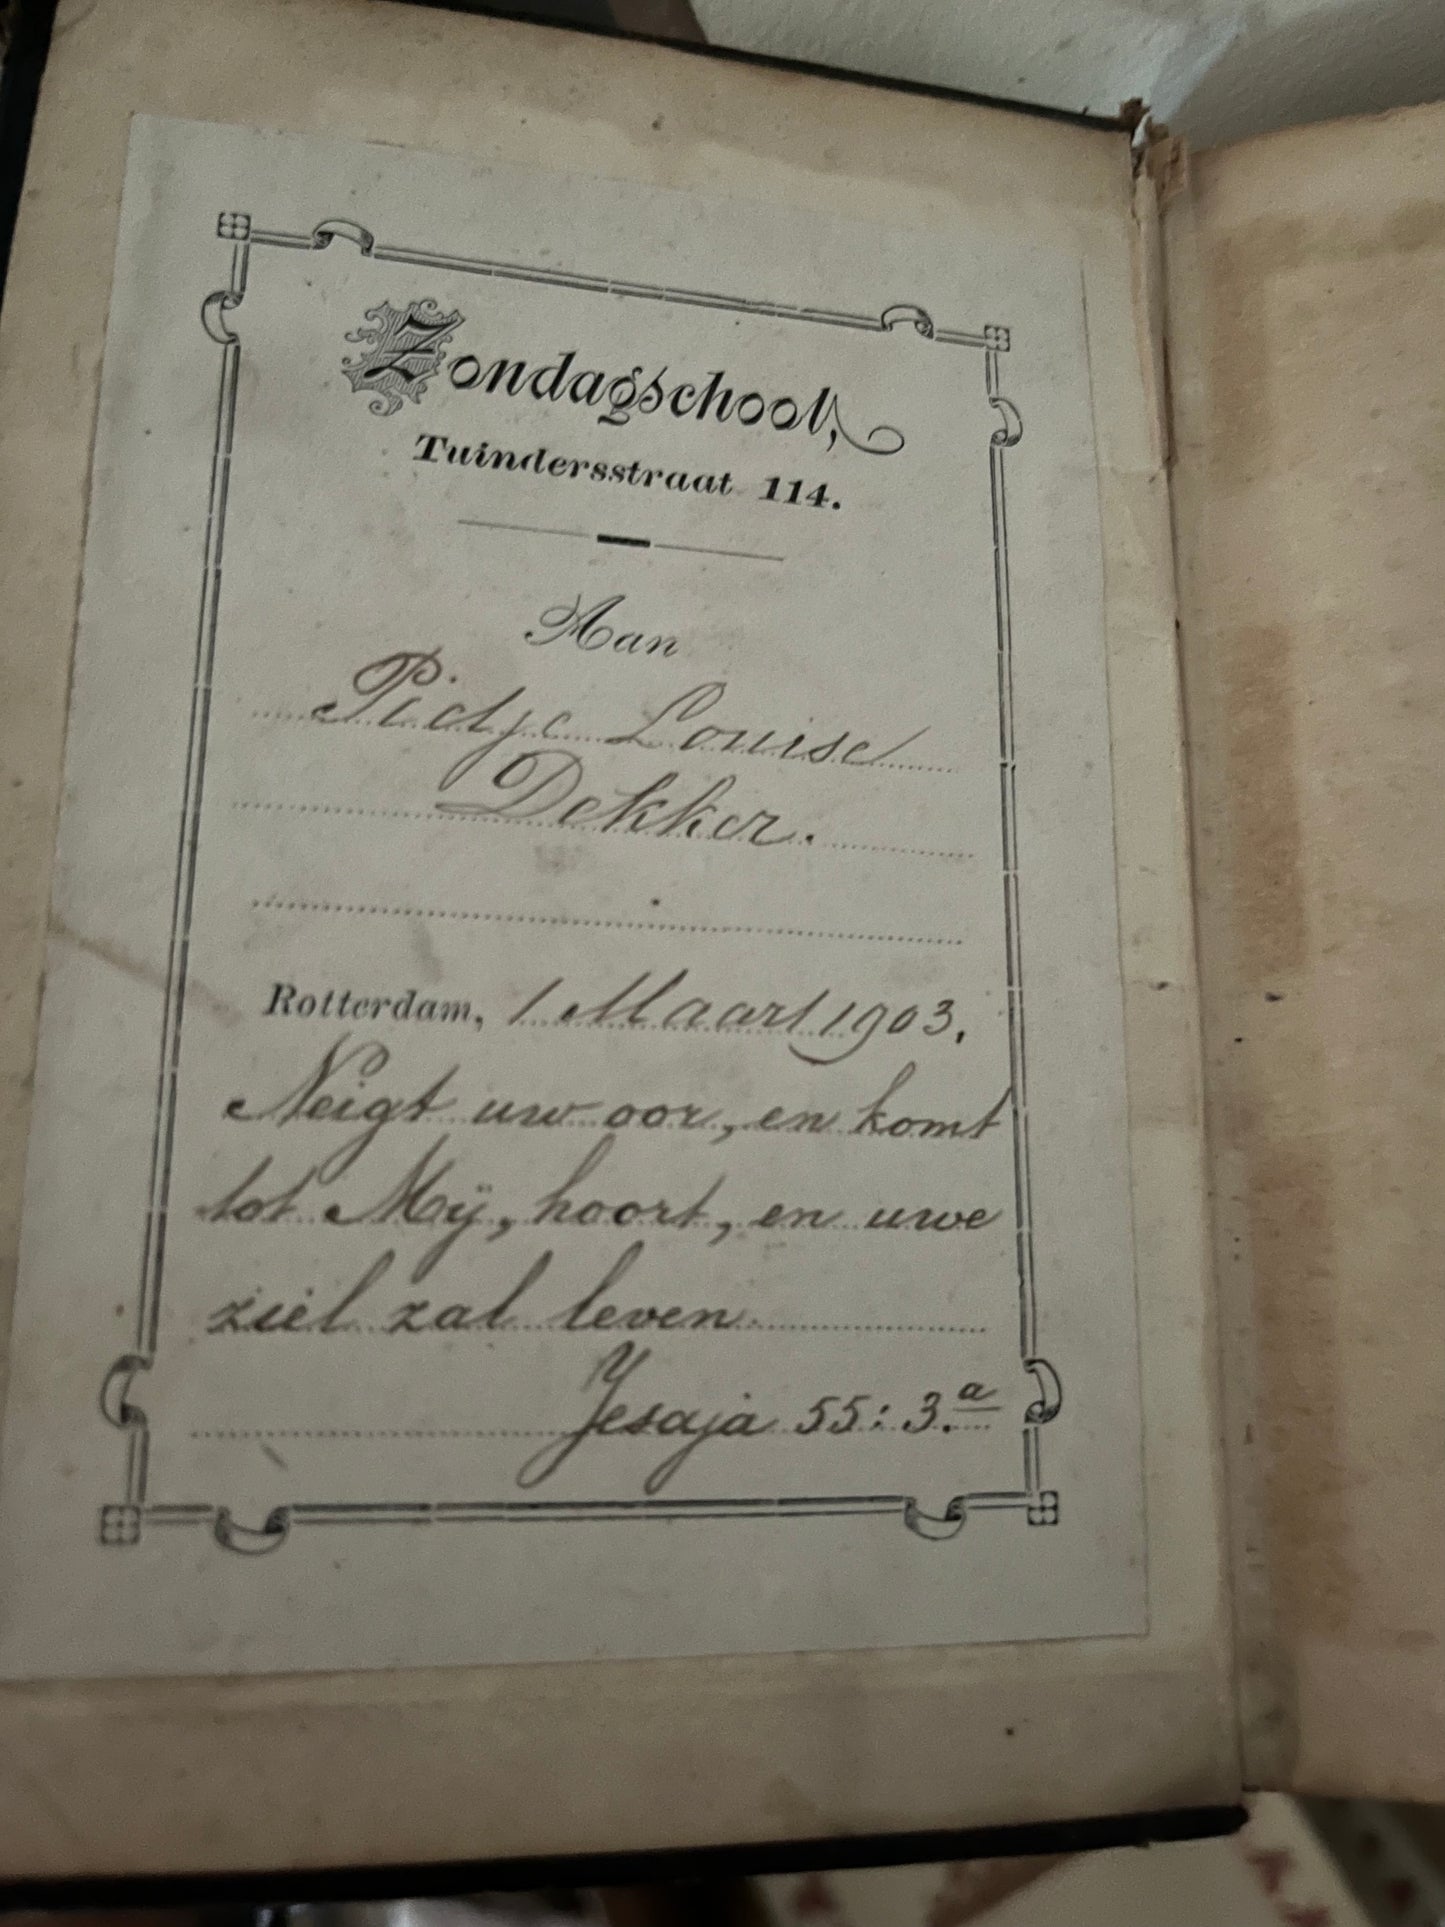 Zondagschool,
Tuindersstraat 114.
Aan
Pietje Louise
Dekker.
Rotterdam, 1 Maart 1903.
Neigt uw oor, en komt
tot Mij, hoort, en uwe
ziel zal leven.
Jesaja 55: 3.a